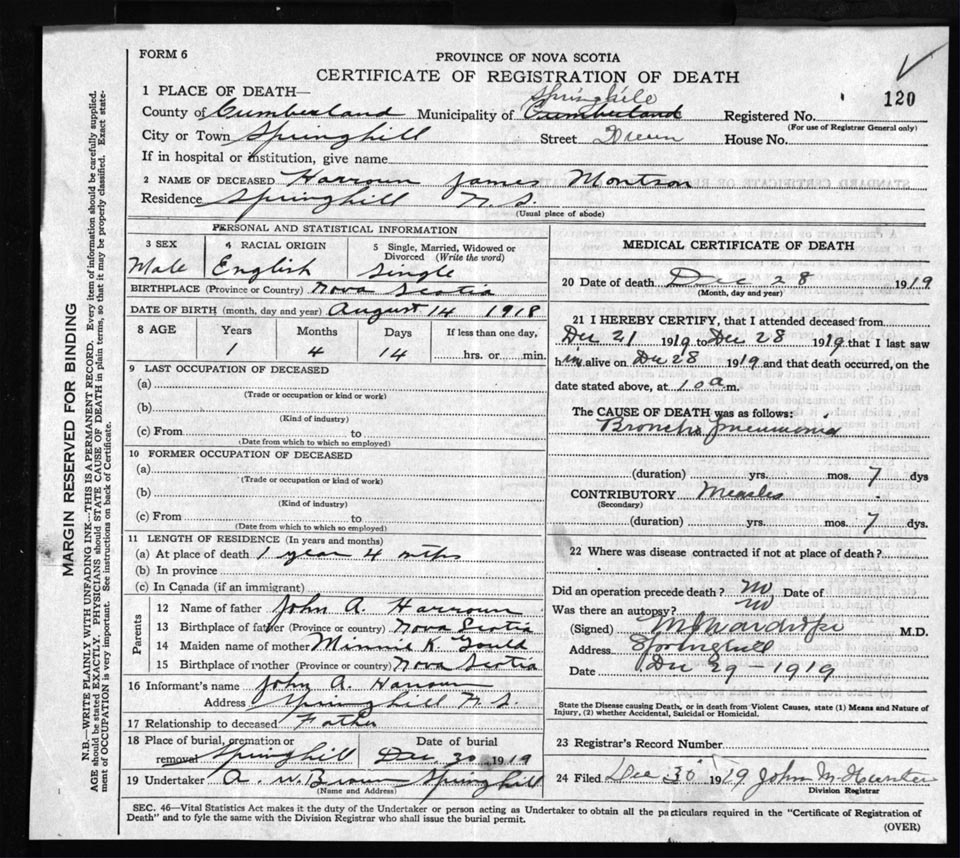 FORM 6
PROVINCE OF NOVA SCOTIA
CERTIFICATE OF REGISTRATION OF DEATH
120
1 PLACE OF DEATH—
Springhill
County of Cumberland Municipality of Cumberland Registered No.
(For use of Registrar General only)
City or Town Springhill Street House No.
If in hospital or institution, give name
2 NAME OF DECEASED Harroun James Montson
Residence Springhill N.S.
(Usual place of abode)
PERSONAL AND STATISTICAL INFORMATION
3 SEX 4 RACIAL ORIGIN 5 Single, Married, Widowed or Divorced (Write the word)
Male English Single
BIRTHPLACE (Province or Country) Nova Scotia
DATE OF BIRTH (month, day and year) August 14 1918
8 AGE Years Months Days If less than one day,
1 4 14 hrs. or min.
9 LAST OCCUPATION OF DECEASED
(a)
(Trade or occupation or kind or work)
(b)
(Kind of industry)
(c) From to
(Date from which to which so employed)
10 FORMER OCCUPATION OF DECEASED
(a)
(Trade or occupation or kind of work)
(b)
(Kind of industry)
(c) From to
(Date from which to which so employed)
11 LENGTH OF RESIDENCE (In years and months)
(a) At place of death 1 year 4 mths
(b) In province
(c) In Canada (if an immigrant)
Parents
12 Name of father John A. Harroun
13 Birthplace of father (Province or country) Nova Scotia
14 Maiden name of mother Minnie K. Gould
15 Birthplace of mother (Province or country) Nova Scotia
16 Informant's name John A. Harroun
Address Springhill N.S.
17 Relationship to deceased Father
18 Place of burial, cremation or Date of burial
removal Springhill Dec. 30 1919
19 Undertaker A. W. Brown Springhill
(Name and Address)
MEDICAL CERTIFICATE OF DEATH
20 Date of death Dec 28 1919
(Month, day and year)
21 I HEREBY CERTIFY, that I attended deceased from
Dec 21 1919 to Dec 28 1919 that I last saw
him alive on Dec 28 1919 and that death occurred, on the
date stated above, at 10 a m.
The CAUSE OF DEATH was as follows:
Broncho pneumonia
(duration) yrs. mos. 7 dys
CONTRIBUTORY Measles
(Secondary)
(duration) yrs. mos. 7 dys.
22 Where was disease contracted if not at place of death?
Did an operation precede death? No, Date of
Was there an autopsy? no
(Signed) M.D.
Address Springhill
Date Dec 29 — 1919
State the Disease causing Death, or in death from Violent Causes, state (1) Means and Nature of
Injury, (2) whether Accidental, Suicidal or Homicidal.
23 Registrar's Record Number
24 Filed Dec 30 1919 John M Hunter
Division Registrar
SEC. 46—Vital Statistics Act makes it the duty of the Undertaker or person acting as Undertaker to obtain all the particulars required in the "Certificate of Registration of
Death" and to fyle the same with the Division Registrar who shall issue the burial permit.
(OVER)
MARGIN RESERVED FOR BINDING
N.B.—WRITE PLAINLY WITH UNFADING INK—THIS IS A PERMANENT RECORD. Every item of information should be carefully supplied.
AGE should be stated EXACTLY. PHYSICIANS should STATE CAUSE OF DEATH in plain terms, so that it may be properly classified. Exact state-
ment of OCCUPATION is very important. See instructions on back of Certificate.